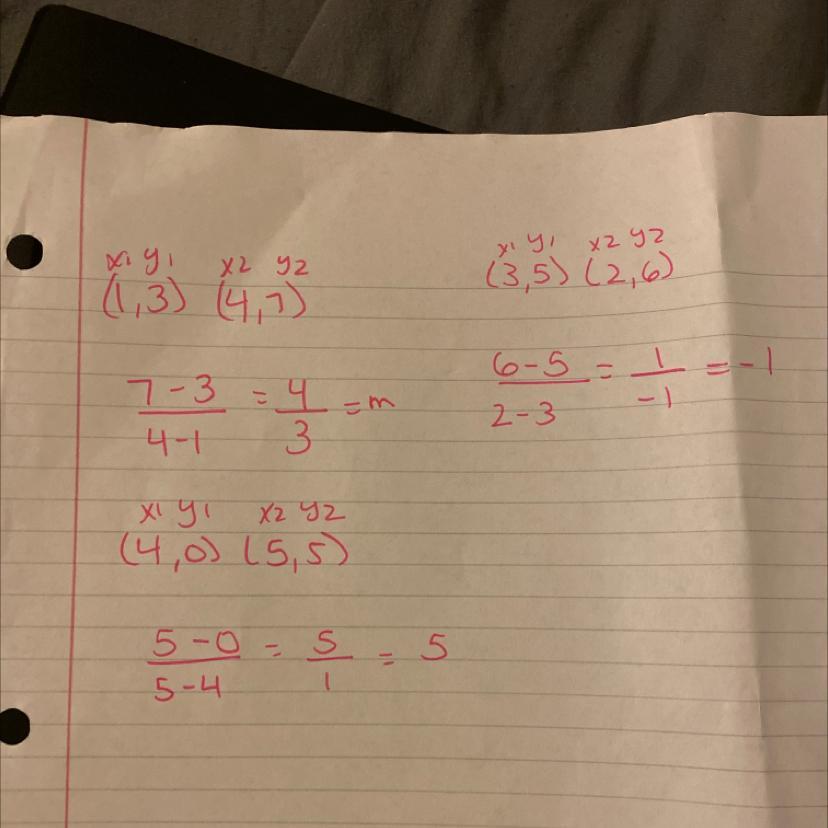 x1 y1 x2 y2
(1,3) (4,7)
7-3 = 4 = m
4-1 3
x1 y1 x2 y2
(4,0) (5,5)
5-0 = 5 = 5
5-4 1
x1 y1 x2 y2
(3,5) (2,6)
6-5 = 1 = -1
2-3 -1